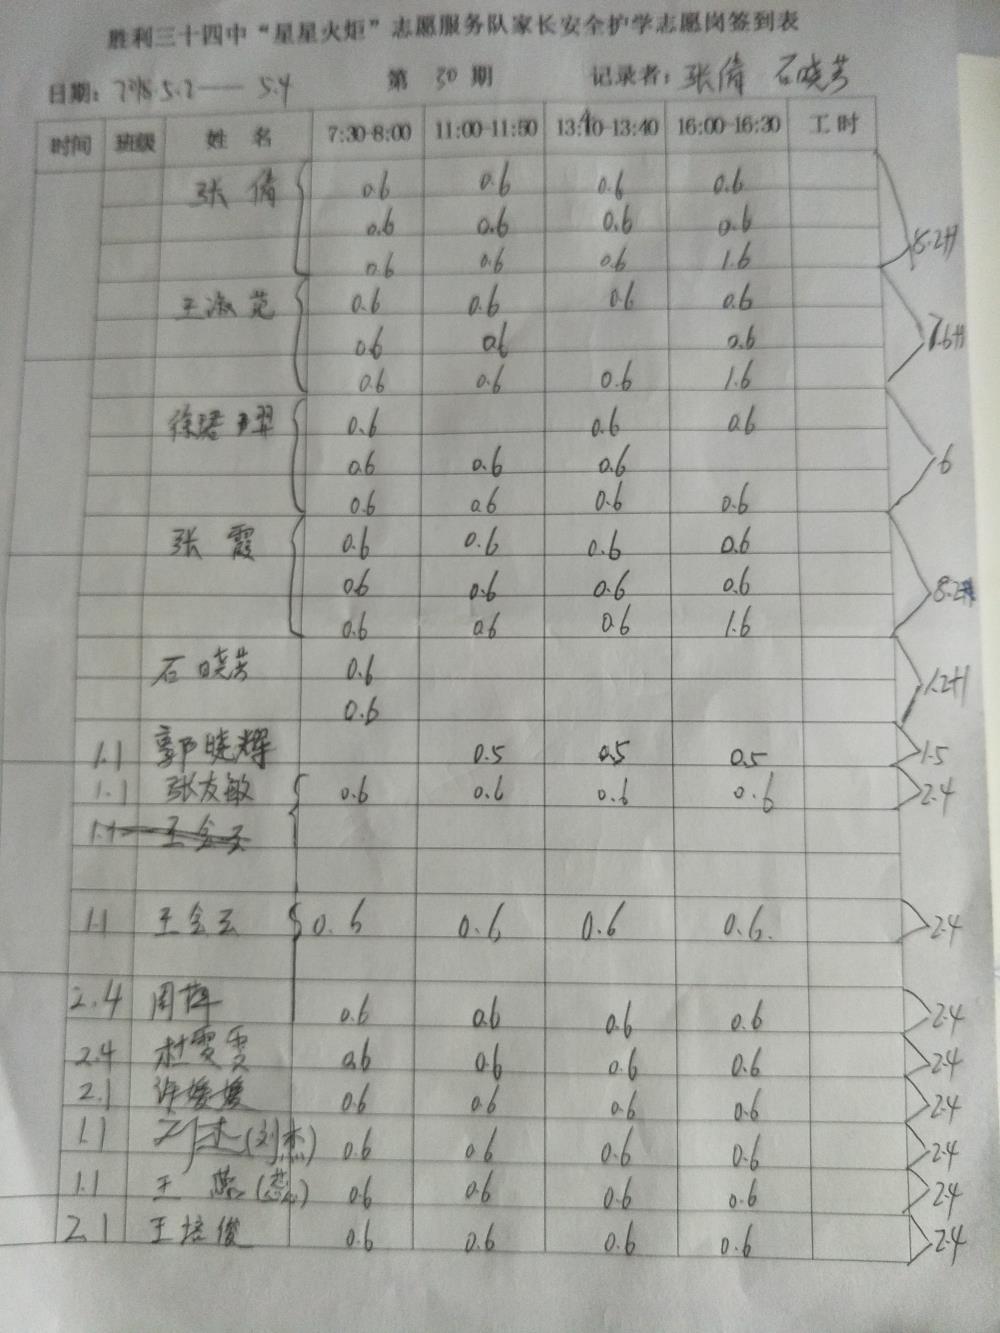 胜利三十四中“星星火炬”志愿服务队家长安全护学志愿岗签到表
日期: 5.2—— 5.4 第 30 期 记录者: 张倩 石晓芳
时间 班级 姓 名 7:30-8:00 11:00-11:50 13:10-13:40 16:00-16:30 工 时
张 倩 0.6 0.6 0.6 0.6
0.6 0.6 0.6 0.6
0.6 0.6 0.6 1.6 8.2H
王淑苑 0.6 0.6 0.6 0.6
0.6 0.6 0.6 7.6H
0.6 0.6 0.6 1.6
徐珺 0.6 0.6 0.6
0.6 0.6 0.6 6
0.6 0.6 0.6 0.6
张 霞 0.6 0.6 0.6 0.6
0.6 0.6 0.6 0.6 8.2H
0.6 0.6 0.6 1.6
石晓芳 0.6
0.6 1.2H
1.1 郭晓辉 0.5 0.5 0.5 1.5
1.1 张友敏 0.6 0.6 0.6 0.6 2.4
1.1 王会云
1.1 王会云 0.6 0.6 0.6 0.6. 2.4
2.4 周 0.6 0.6 0.6 0.6 2.4
2.4 杜雯雯 0.6 0.6 0.6 0.6 2.4
2.1 许媛媛 0.6 0.6 0.6 0.6 2.4
1.1 刘杰(刘杰) 0.6 0.6 0.6 0.6 2.4
1.1 王 燕(燕) 0.6 0.6 0.6 0.6 2.4
2.1 王培俊 0.6 0.6 0.6 0.6 2.4